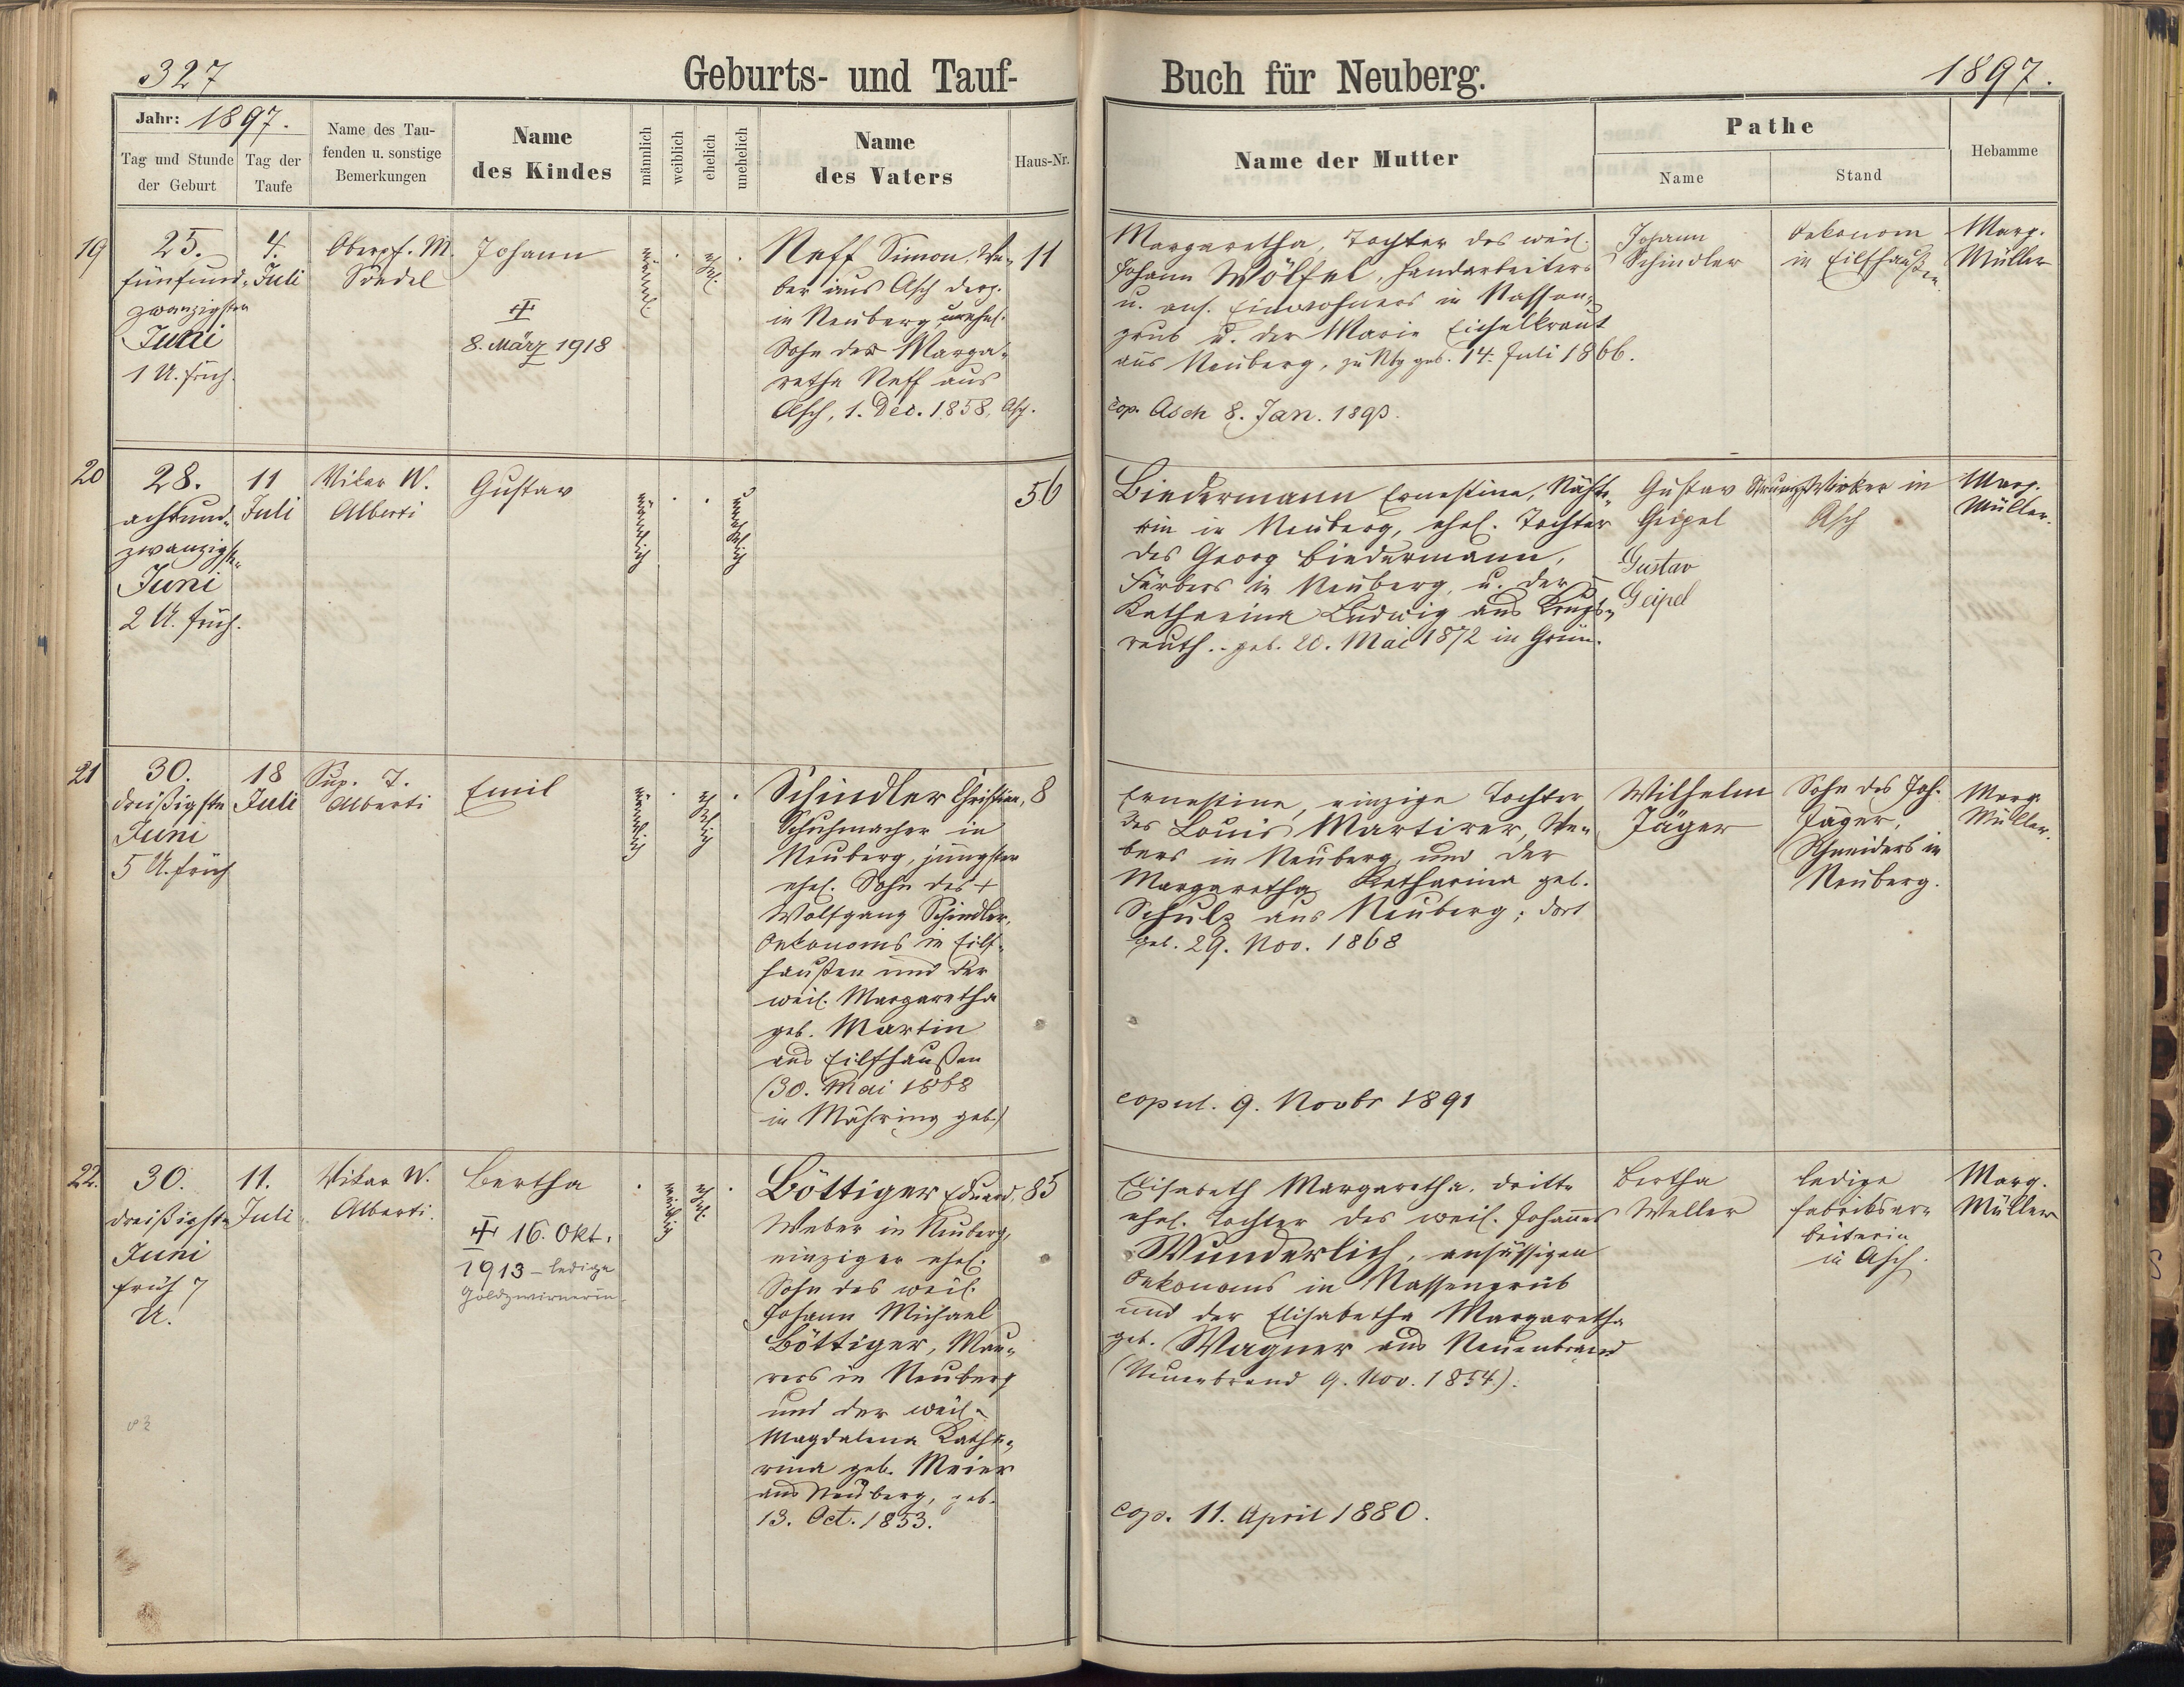 327
Geburts- und Tauf-
Buch für Neuberg.
1897.
Jahr: 1897.
Tag und Stunde der Geburt
Tag der Taufe
Name des Tau-
fenden u. sonstige
Bemerkungen
Name
des Kindes
männlich
weiblich
ehelich
unehelich
Name
des Vaters
Haus-Nr.
Name der Mutter
Pathe
Name
Stand
Hebamme
19
25.
fünfund-
zwanzigsten
Juni
1 U. früh.
4.
Juli
Oberpf. M.
Johann
8. März 1918
männl.
ehel.
Neff Simon, We-
ber aus Asch derz.
in Neuberg, unehel.
Sohn der Marga-
retha Neff aus
Asch, 1. Dec. 1858, Asch.
11
Margaretha, Tochter des weil.
Johann Wölfel, Handarbeiters
u. ans. Einwohners in Nassen-
grub u. der Marie Eichelkraut
aus Neuberg, zu Nbg geb. 14. Juli 1866.
cop. Asch 8. Jan. 1893.
Johann
Schindler
Oekonom
in Eilfhaußen
Marg.
Müller
20
28.
achtund-
zwanzigste
Juni
2 U. früh.
11
Juli
Vikar W.
Alberti
Gustav
männlich
unehelich
56
Biedermann Ernestine, Nähte-
rin in Neuberg, ehel. Tochter
des Georg Biedermann,
Färbers in Neuberg, u. der
Katharina Ludwig aus Krugs-
reuth. geb. 20. Mai 1872 in Grün.
Gustav
Geipel
Gustav
Geipel
Strumpfwirker in
Asch
Marg.
Müller.
21
30.
dreißigste
Juni
5 U. früh
18
Juli
Sup. T.
Alberti
Emil
männlich
ehelich
Schindler Christian,
Schuhmacher in
Neuberg, jüngster
ehel. Sohn des +
Wolfgang Schindler,
Oekonoms in Eilf-
haußen und der
weil. Margaretha
geb. Martin
aus Eilfhaußen
(30. Mai 1868
in Mähring geb.)
8
Ernestine, einzige Tochter
des Louis Martirer, We-
bers in Neuberg, und der
Margaretha Katharina geb.
Schulz aus Neuberg; dort
geb. 29. Nov. 1868
copul. 9. Novbr 1891
Wilhelm
Jäger
Sohn des Joh.
Jäger,
Schneiders in
Neuberg.
Marg.
Müller.
22.
30.
dreißigste
Juni
früh 7
U.
11.
Juli
Vikar W.
Alberti.
Bertha
16. Okt.
1913 – ledige
Goldzwirnerin
weiblich
ehel.
Böttiger Eduard,
Weber in Neuberg,
einziger ehel.
Sohn des weil.
Johann Michael
Böttiger, Mau-
rers in Neuberg
und der weil.
Magdalena Katha-
rina geb. Meier
aus Neuberg, geb.
13. Oct. 1853.
85
Elisabeth Margaretha, dritte
ehel. Tochter des weil. Johannes
Wunderlich, ansässigen
Oekonoms in Nassengrub
und der Elisabetha Margaretha
geb. Wagner aus Neuenbrand
(Neuenbrand 9. Nov. 1854).
cop. 11. April 1880.
Bertha
Weller
ledige
Fabriksar-
beiterin
in Asch.
Marg.
Müller